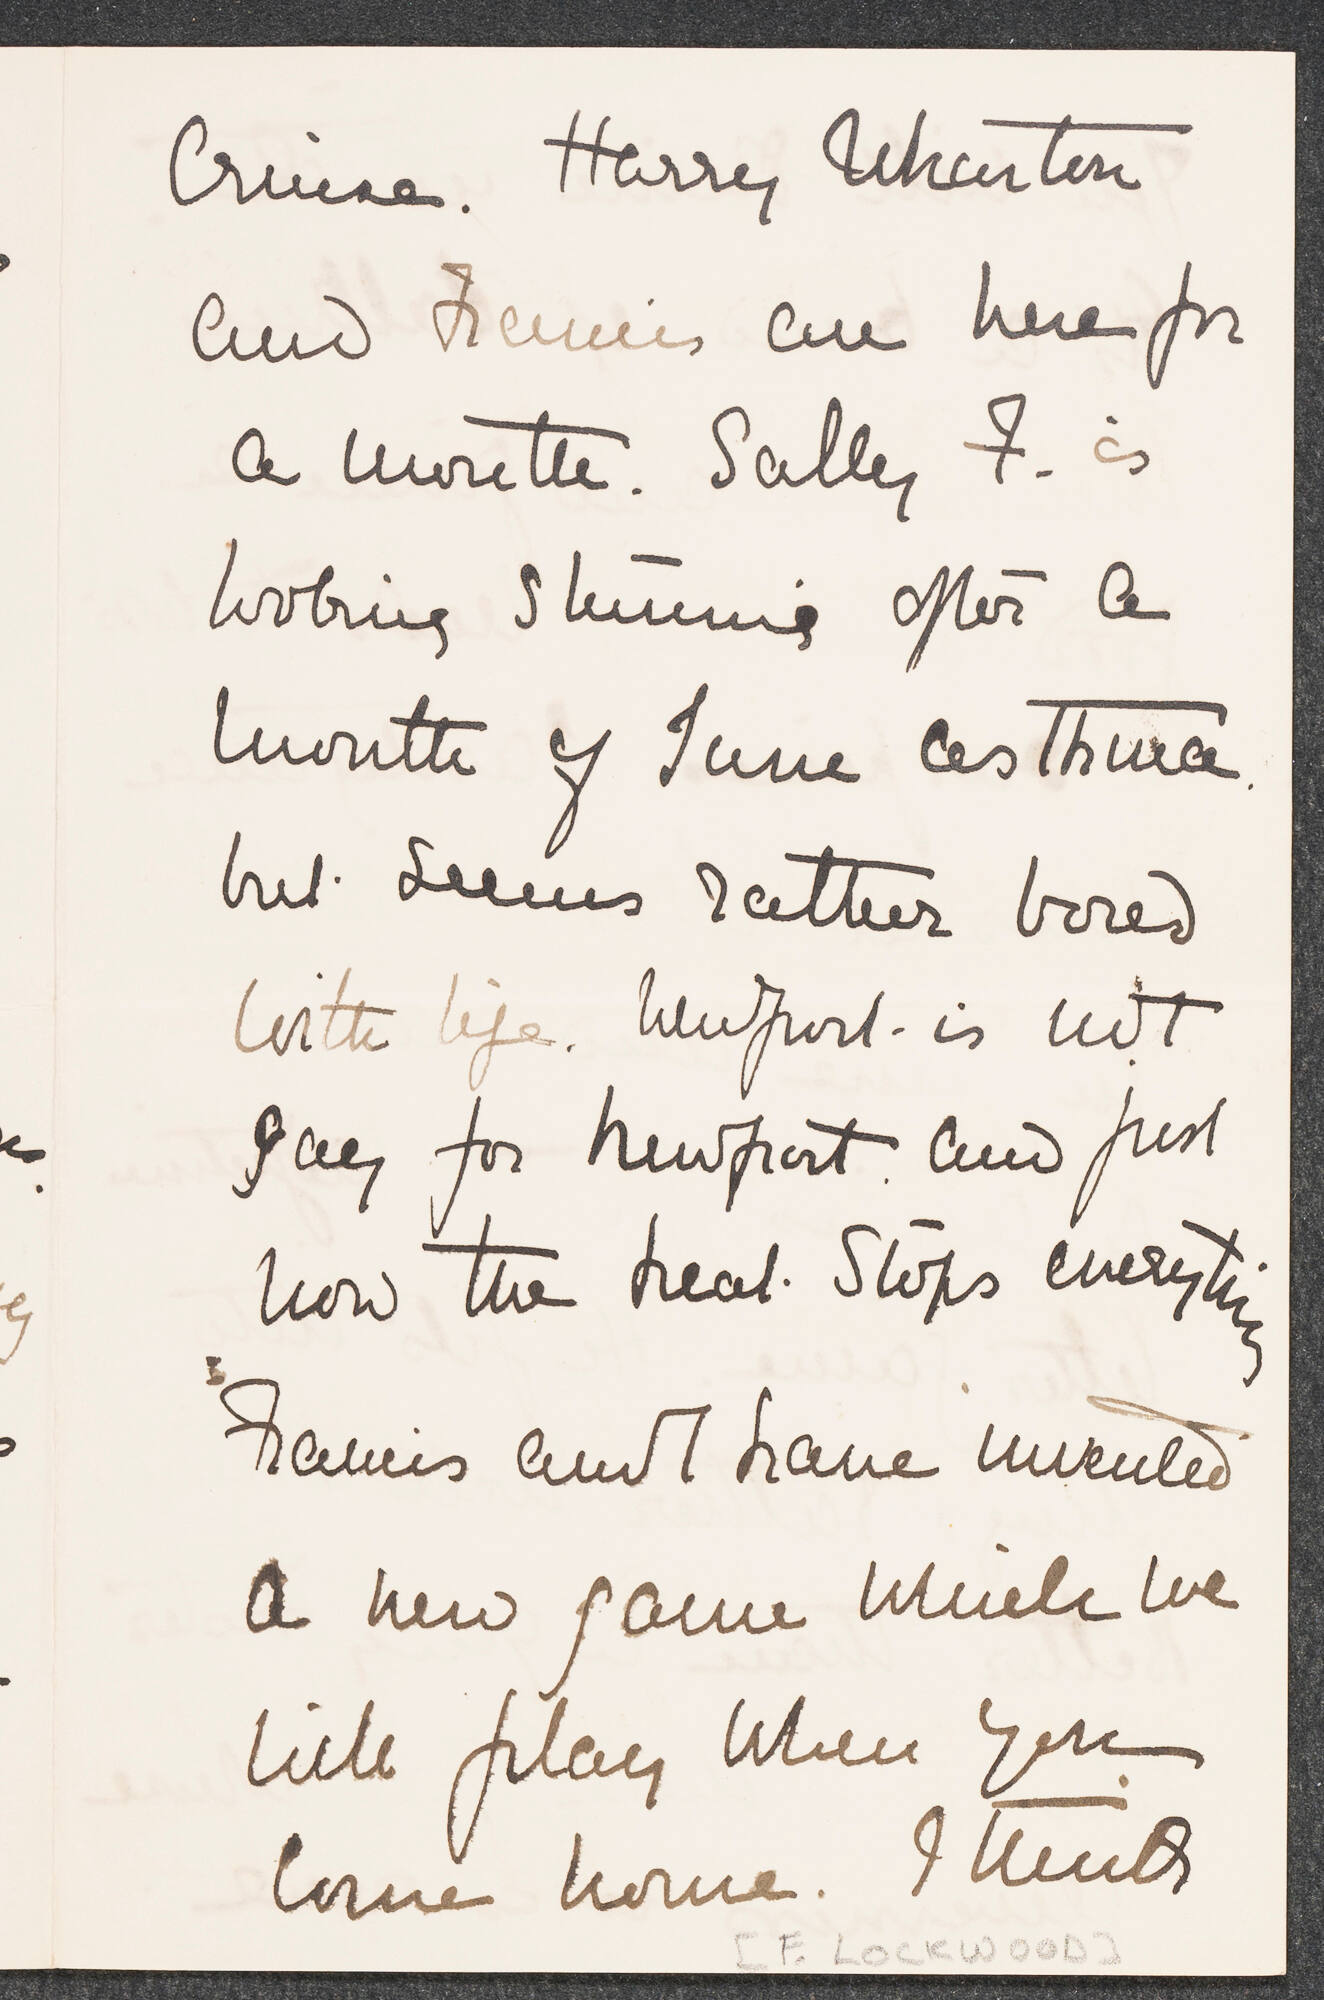 Cruise. Harry Wharton
and Francis are here for
a month. Sally F. is
looking stunning after a
month of June asthma.
but seems rather bored
with life. Newport is not
gay for Newport. and just
now the heat stops everything
Francis and I have invented
a new game which we
will play when you
come home. I think
[F. LOCKWOOD]